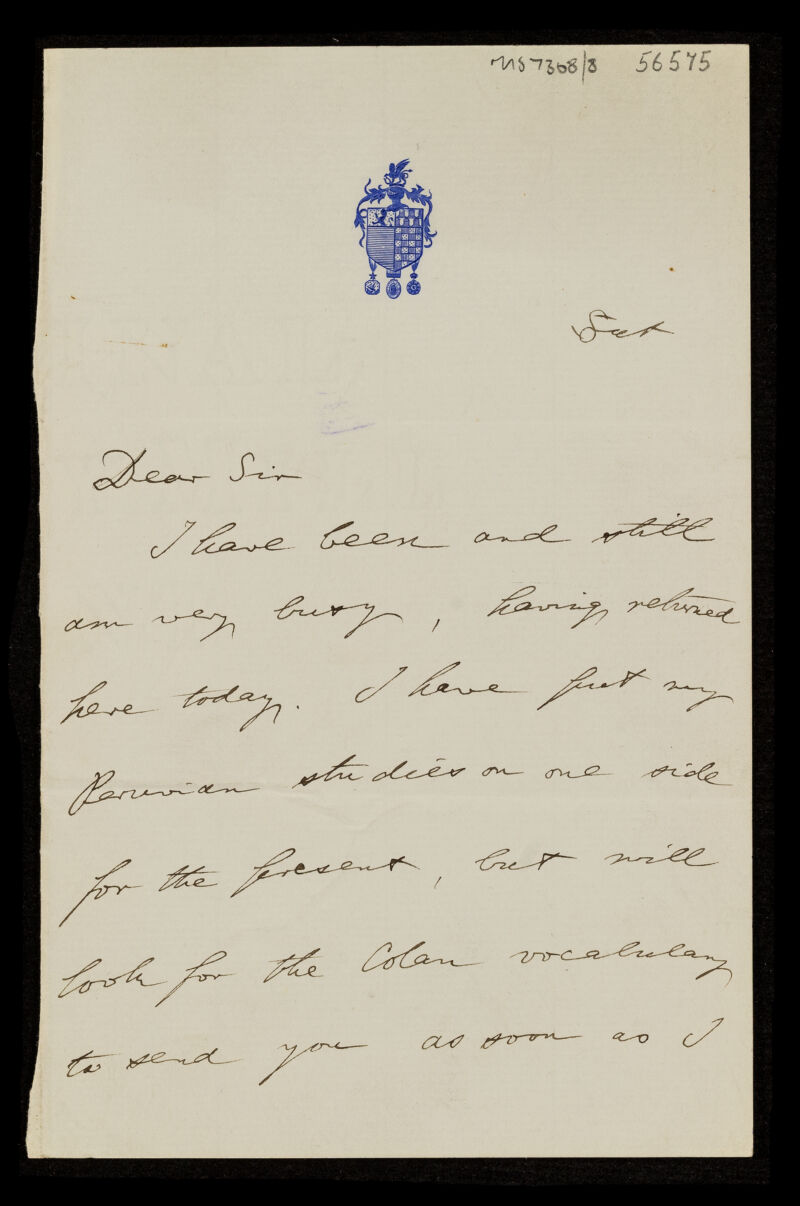 MS7368/8 56575
Sat
Dear Sir
I have been and still
am very busy, having returned
here today. I have put my
Peruvian studies on one side
for the present, but will
look for the Colan vocabulary
to send you as soon as I